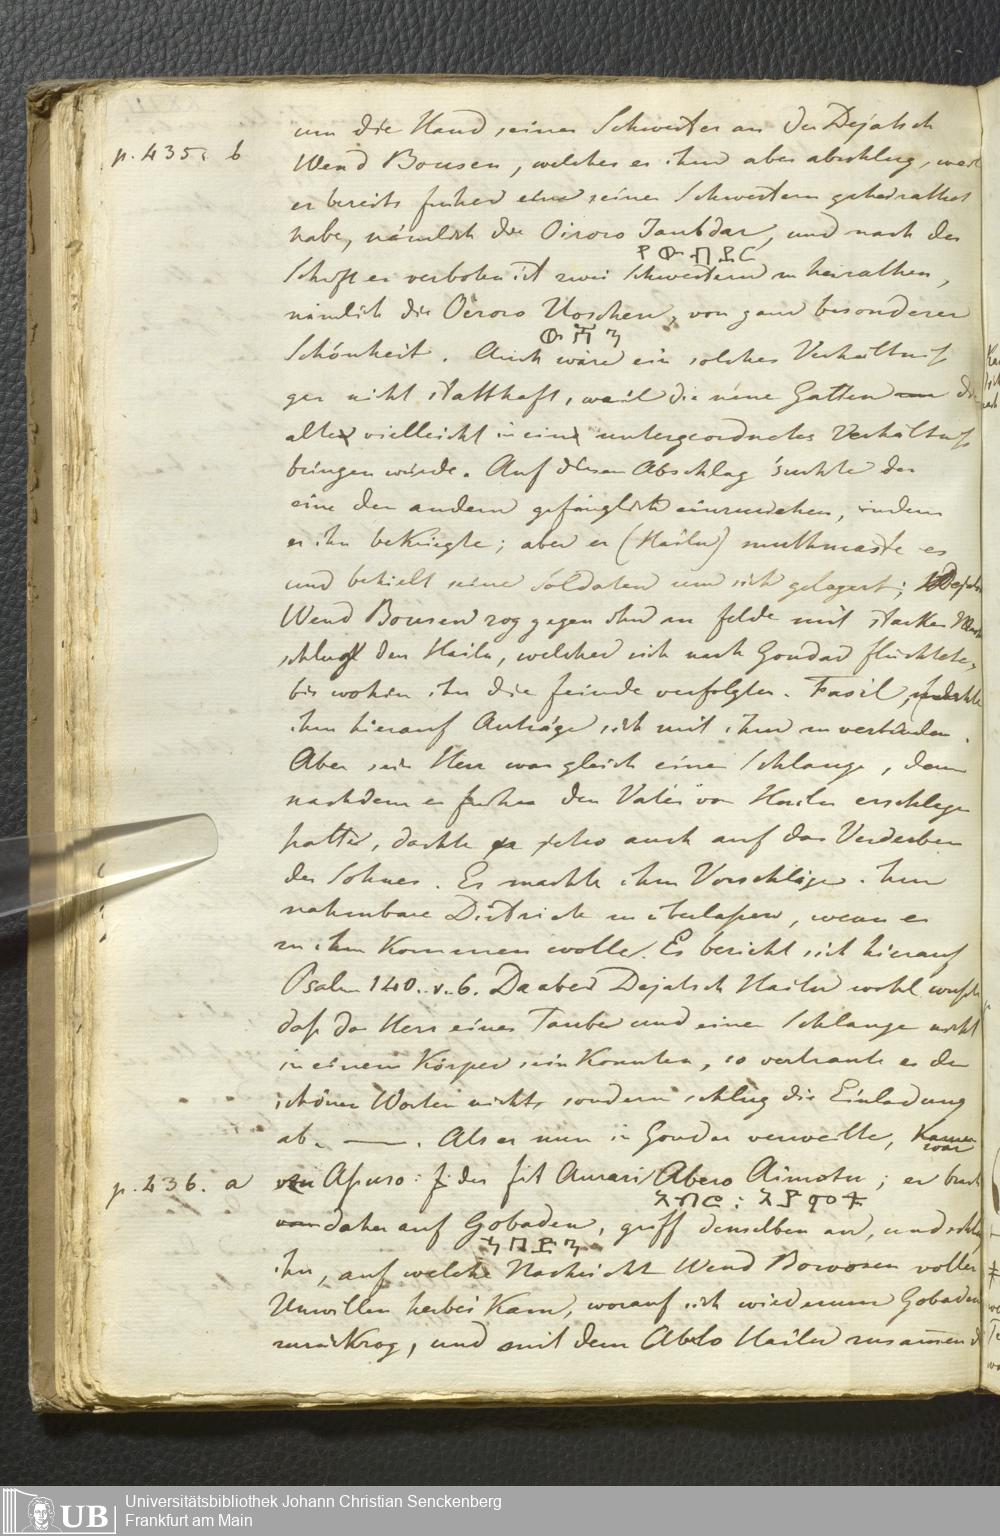 um die Hand seiner Schwester an der Dejatsch
p. 435. b Wend Bousen, welches er ihm aber abschlug, weil
er bereits früher eine seiner Schwestern geheirathet
habe, nämlich die Oisoro Taubdar, und nach der
Schrift es verboten ist zwei Schwestern zu heirathen,
nämlich die Oisoro Uoschen, von ganz besonderer
Schönheit. Auch wäre ein solches Verhältniß
gar nicht statthaft, weil die neue Gatten die
alte vielleicht in ein untergeordnetes Verhältniß
bringen würde. Auf diesen Abschlag suchte der
eine den andern gefänglich einzuziehen, indem
er ihn bekriegte; aber er (Hailu) muthmaste es
und behielt seine Soldaten um sich gelagert; Dejatsch
Wend Bousen zog gegen ihn zu felde mit starker
schlug den Hailu, welcher sich nach Gondar flüchtete,
bis wohin ihn die feinde verfolgten. Fasil
ihm hierauf Anträge sich mit ihm zu verbinden.
Aber sein Herz war gleich einer Schlange, denn
nachdem er früher den Vater von Hailu erschlagen
hatte, dachte er auch auf das Verderben
des Sohnes. Er machte ihm Vorschläge ihm
nahmbare Districte zu überlaßen, wenn er
zu ihm kommen wolle. Es bericht sich hierauf
Psalm 140. v. 6. Da aber Dejatsch Hailu wohl wußte
daß das Herz einer Taube und einer Schlange nicht
in einem Körper sein konnten, so vertraute er den
schönen Worten nicht, sondern schlug die Einladung
ab. — . Als er nun in Gondar verweilte, kamen
p. 436. a Aßuso: der fit Aurari Abero Aimotu; er brach
አቤሮ : አይሞቱ
daher auf Gobaden, griff denselben an, und schlug
ihn, auf welche Nachricht Wend Bowosen voller
Unwillen herbei kam, worauf sich wiederum Gobaden
zurückzog, und mit dem Abeto Hailu zusammen
Universitätsbibliothek Johann Christian Senckenberg
Frankfurt am Main
UB